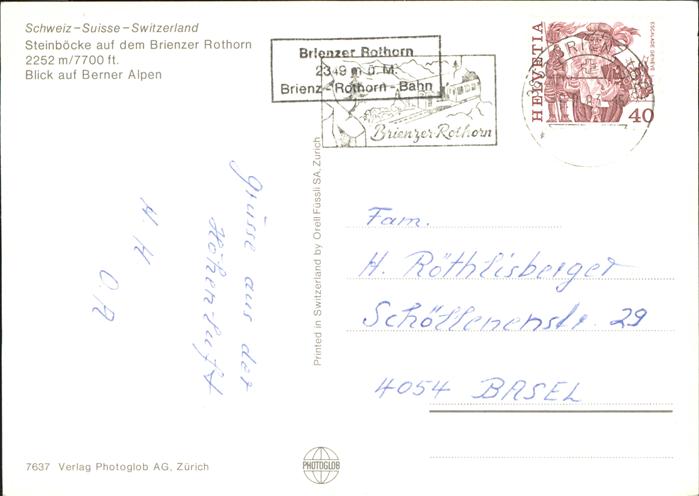 Schweiz – Suisse – Switzerland
Steinböcke auf dem Brienzer Rothorn
2252 m/7700 ft.
Blick auf Berner Alpen
Brienzer Rothorn
2349 m ü. M.
Brienz - Rothorn - Bahn
Brienzer Rothorn
BRIEN
HELVETIA
ESCALADE GENÈVE
40
Grüsse aus der
Höhenluft
Printed in Switzerland by Orell Füssli SA, Zürich
Fam.
H. Röthlisberger
Schöllenenstr. 29
4054 BASEL
7637 Verlag Photoglob AG, Zürich
PHOTOGLOB